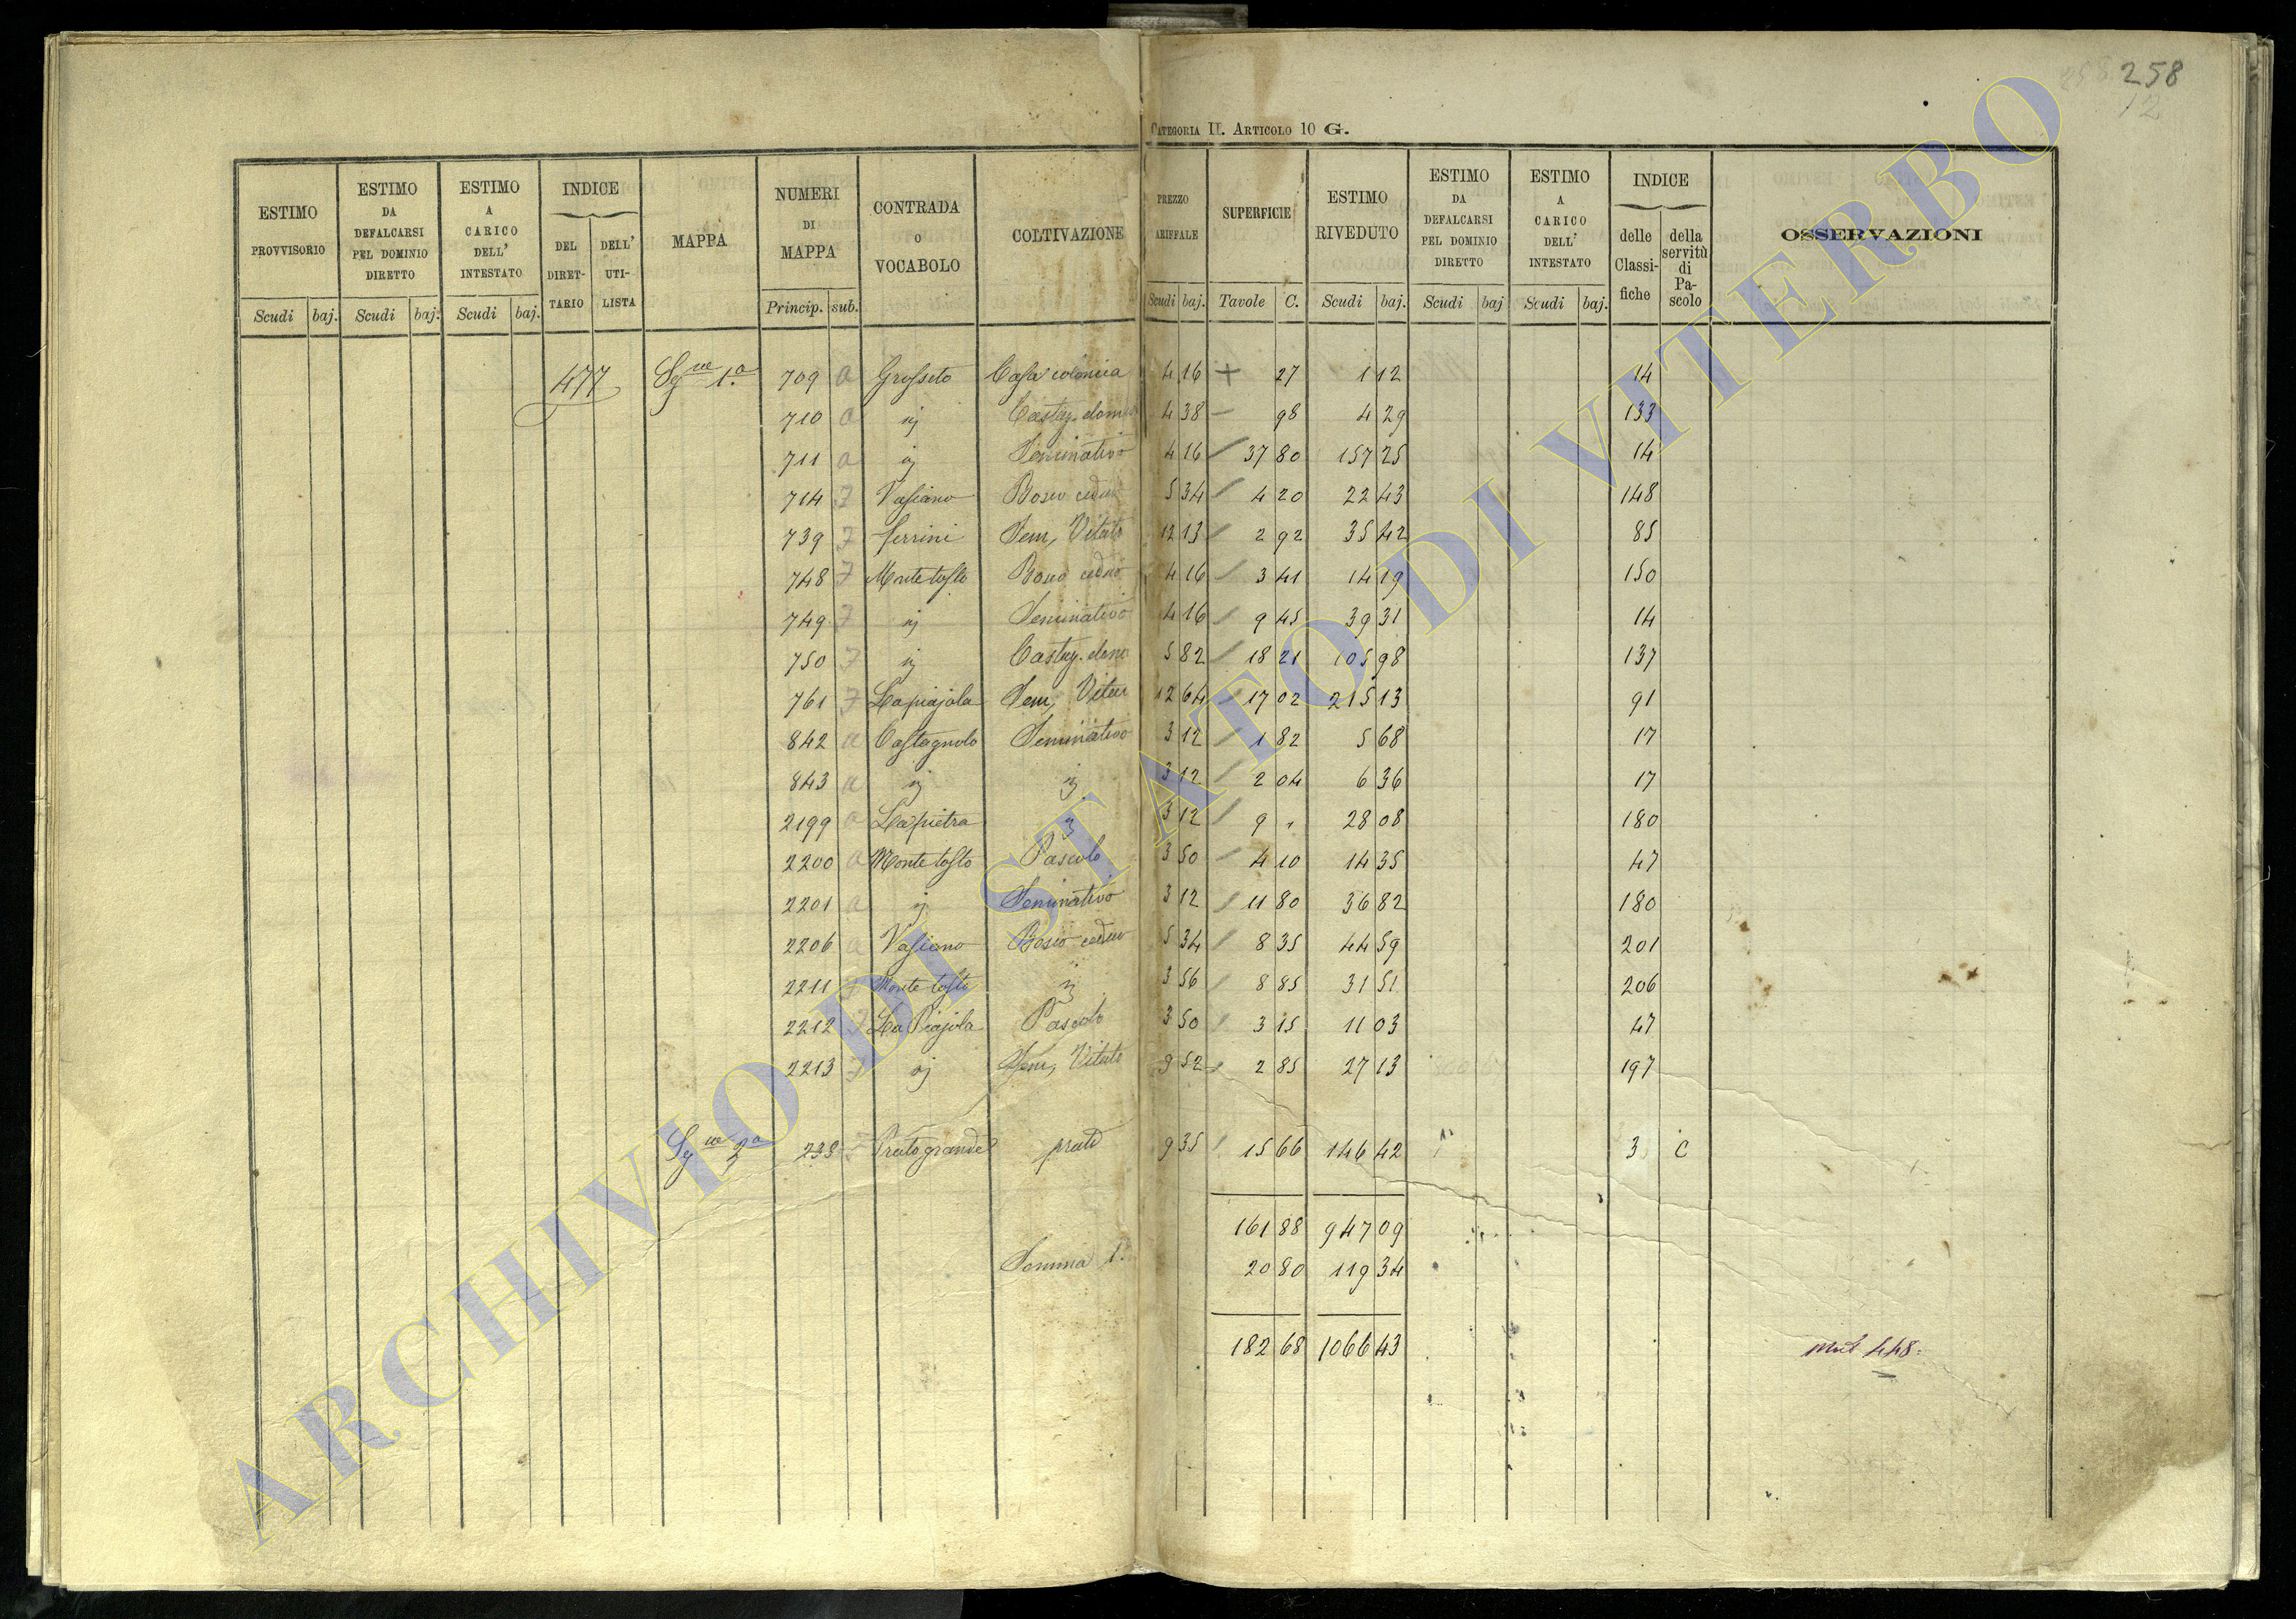 258
12
CATEGORIA II. ARTICOLO 10 G.
ESTIMO PROVVISORIO Scudi baj.
ESTIMO DA DEFALCARSI PEL DOMINIO DIRETTO Scudi baj.
ESTIMO A CARICO DELL' INTESTATO Scudi baj.
INDICE DEL DIRETTARIO DELL' UTILISTA
MAPPA
NUMERI DI MAPPA Princip. sub.
CONTRADA O VOCABOLO
COLTIVAZIONE
PREZZO ARIFFALE Scudi baj.
SUPERFICIE Tavole C.
ESTIMO RIVEDUTO Scudi baj.
ESTIMO DA DEFALCARSI PEL DOMINIO DIRETTO Scudi baj
ESTIMO A CARICO DELL' INTESTATO Scudi baj.
INDICE delle Classifiche della servitù di Pascolo
OSSERVAZIONI
477 Sgne 1.a 709 a Grosseto Casa colonica 4 16 + 27 1 12 14
710 a ij Castag. dom 4 38 - 98 4 29 133
711 a ij Seminativo 4 16 / 37 80 157 25 14
714 Vasiano Bosco ceduo 5 34 / 4 20 22 43 148
739 ferrini Sem, Vitato 12 13 / 2 92 35 42 85
748 Montetosto Bosco ceduo 4 16 / 3 41 14 19 150
749 ij Seminativo 4 16 / 9 45 39 31 14
750 ij Castag. dom 5 82 / 18 21 105 98 137
761 La piajola Sem, Vitato 12 64 / 17 02 215 13 91
842 a Castagnolo Seminativo 3 12 / 1 82 5 68 17
843 a ij ij 3 12 / 2 04 6 36 17
2199 a La pietra ij 3 12 / 9 " 28 08 180
2200 a Monte tosto Pascolo 3 50 / 4 10 14 35 47
2201 a ij Seminativo 3 12 / 11 80 36 82 180
2206 a Vasiano Bosco ceduo 5 34 / 8 35 44 59 201
2211 Monte tosto ij 3 56 / 8 85 31 51 206
2212 La Piajola Pascolo 3 50 / 3 15 11 03 47
2213 ij Sem, Vitato 9 52 / 2 85 27 13 197
Sgne 2a 238 Prato grande prato 9 35 / 15 66 146 42 3 C
161 88 947 09
Somma 1a 20 80 119 34
182 68 1066 43
Mut 448=
ARCHIVIO DI STATO DI VITERBO